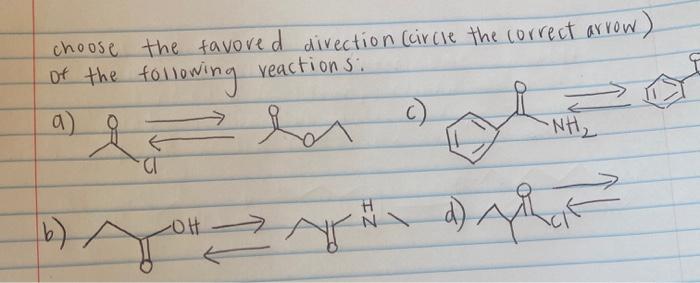 choose the favored direction (circle the correct arrow)
of the following reactions:
a) O Cl O O
c) O NH₂ O
b) OH O O H N
d) O Cl